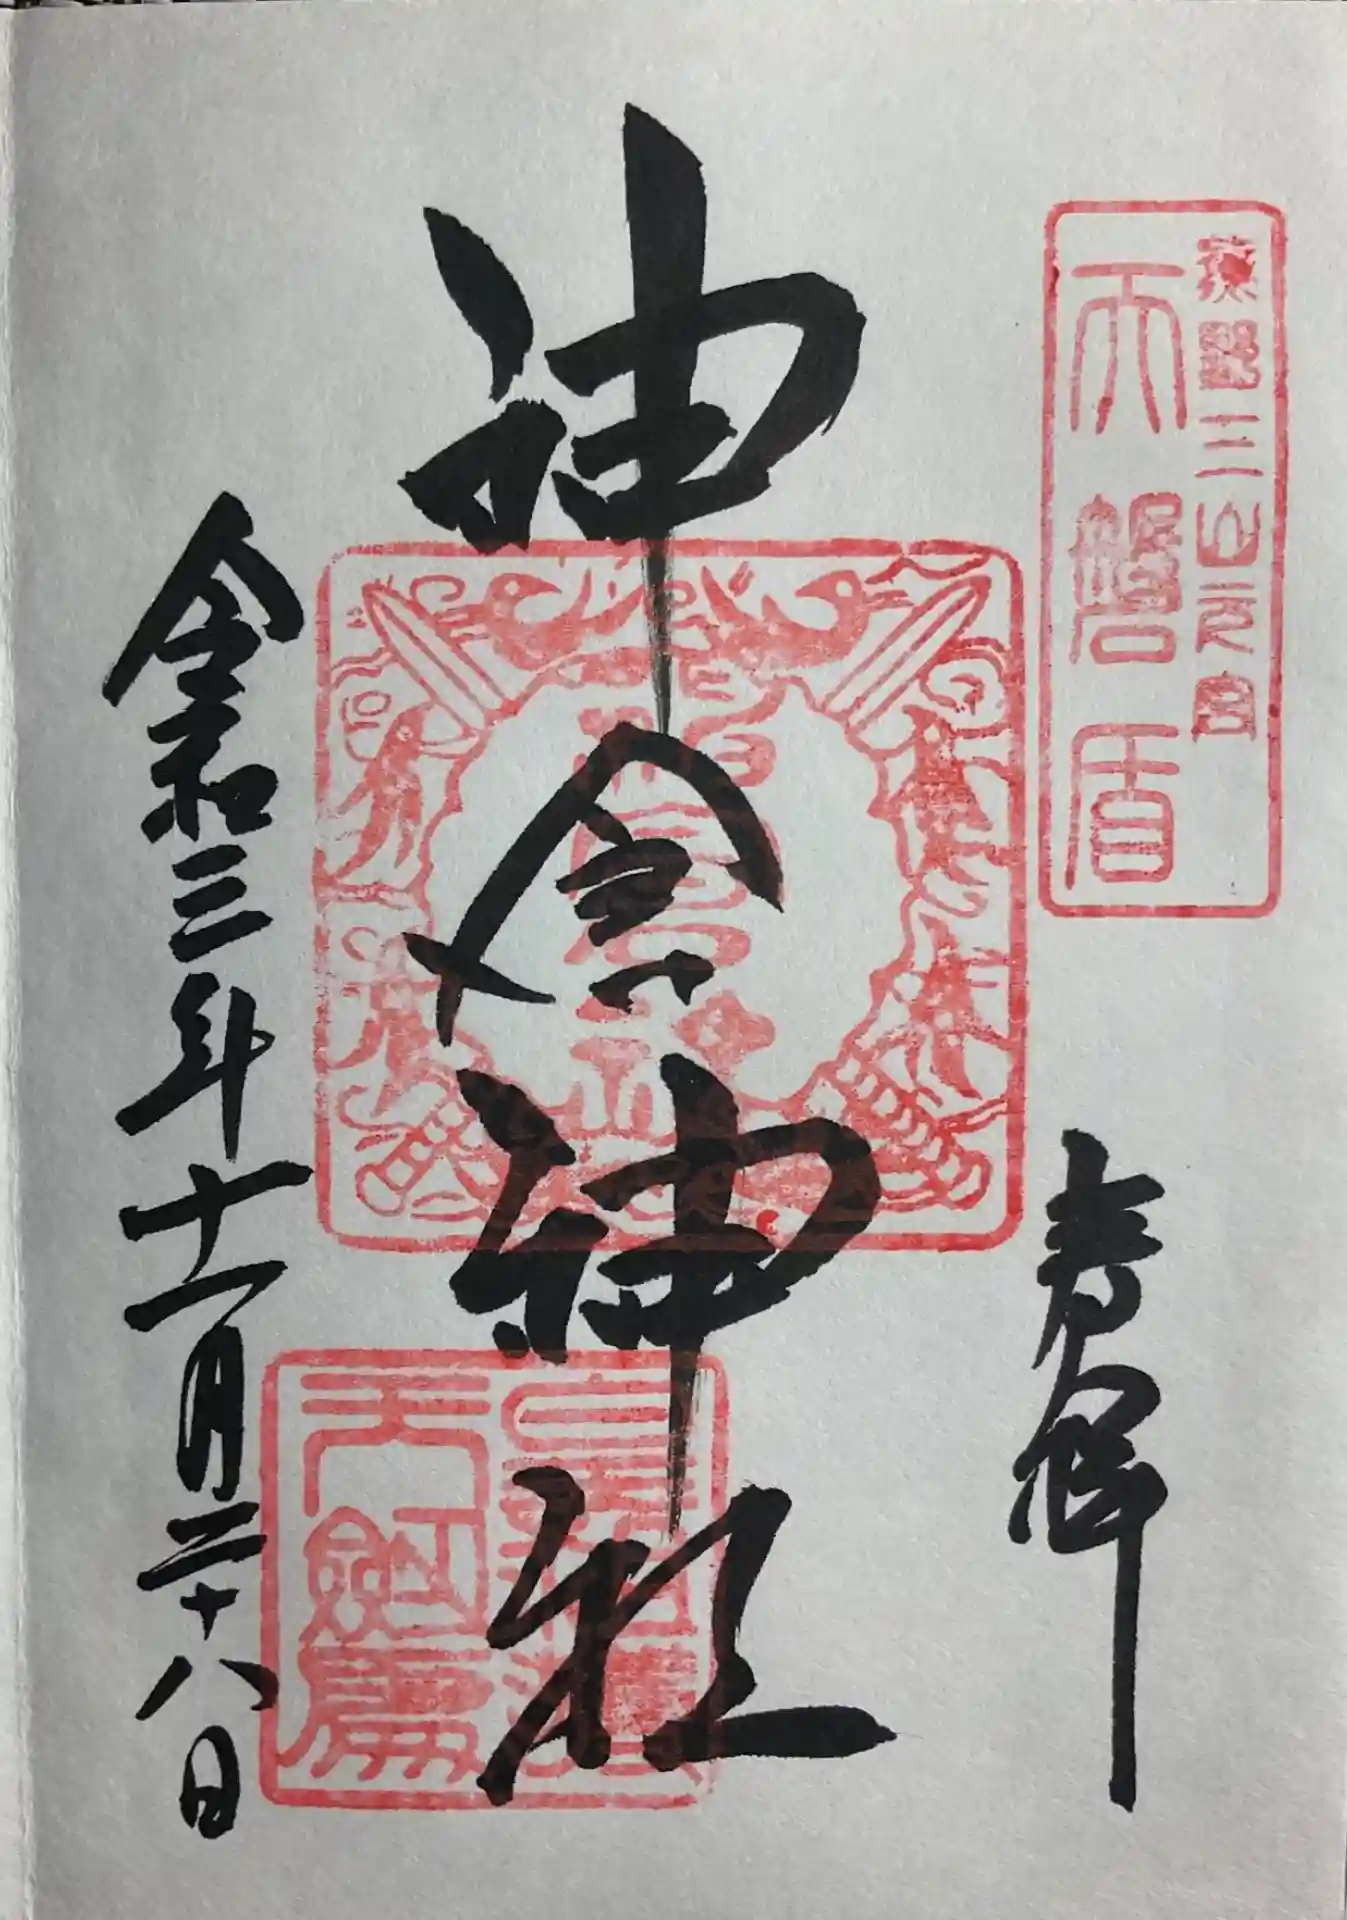 熊野三山元宮
天磐盾
奉拝
神倉神社
令和三年十一月二十八日